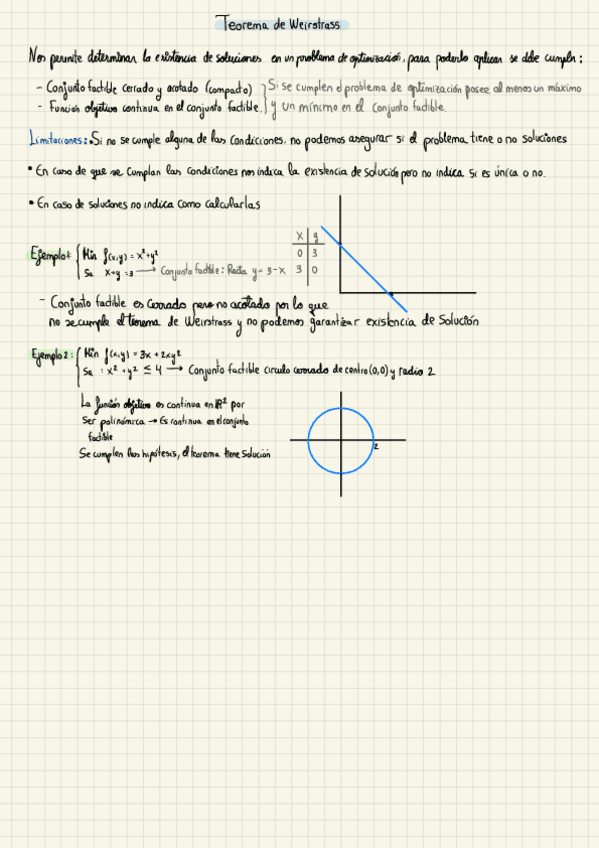 Teorema de Weirstrass
Nos permite determinar la existencia de soluciones en un problema de optimización, para poderlo aplicar se debe cumplir:
- Conjunto factible cerrado y acotado (compacto) } Si se cumplen el problema de optimización posee al menos un máximo
- Función objetivo continua en el conjunto factible. y un mínimo en el conjunto factible.
Limitaciones: • Si no se cumple alguna de las condiciones, no podemos asegurar si el problema tiene o no soluciones
• En caso de que se cumplan las condiciones nos indica la existencia de solución pero no indica si es única o no.
• En caso de soluciones no indica como calcularlas
x | y
0 | 3
3 | 0
Ejemplo 1: { Min f(x,y) = x²+y²
Sa x+y=3 → Conjunto factible: Recta y=3-x
- Conjunto factible es cerrado pero no acotado por lo que
no se cumple el teorema de Weirstrass y no podemos garantizar existencia de solución
Ejemplo 2: { Min f(x,y) = 3x + 2xy²
Sa : x² + y² ≤ 4 → Conjunto factible circulo cerrado de centro (0,0) y radio 2
La función objetivo es continua en ℝ² por
ser polinómica → Es continua en el conjunto
factible
Se cumplen las hipótesis, el teorema tiene solución
2